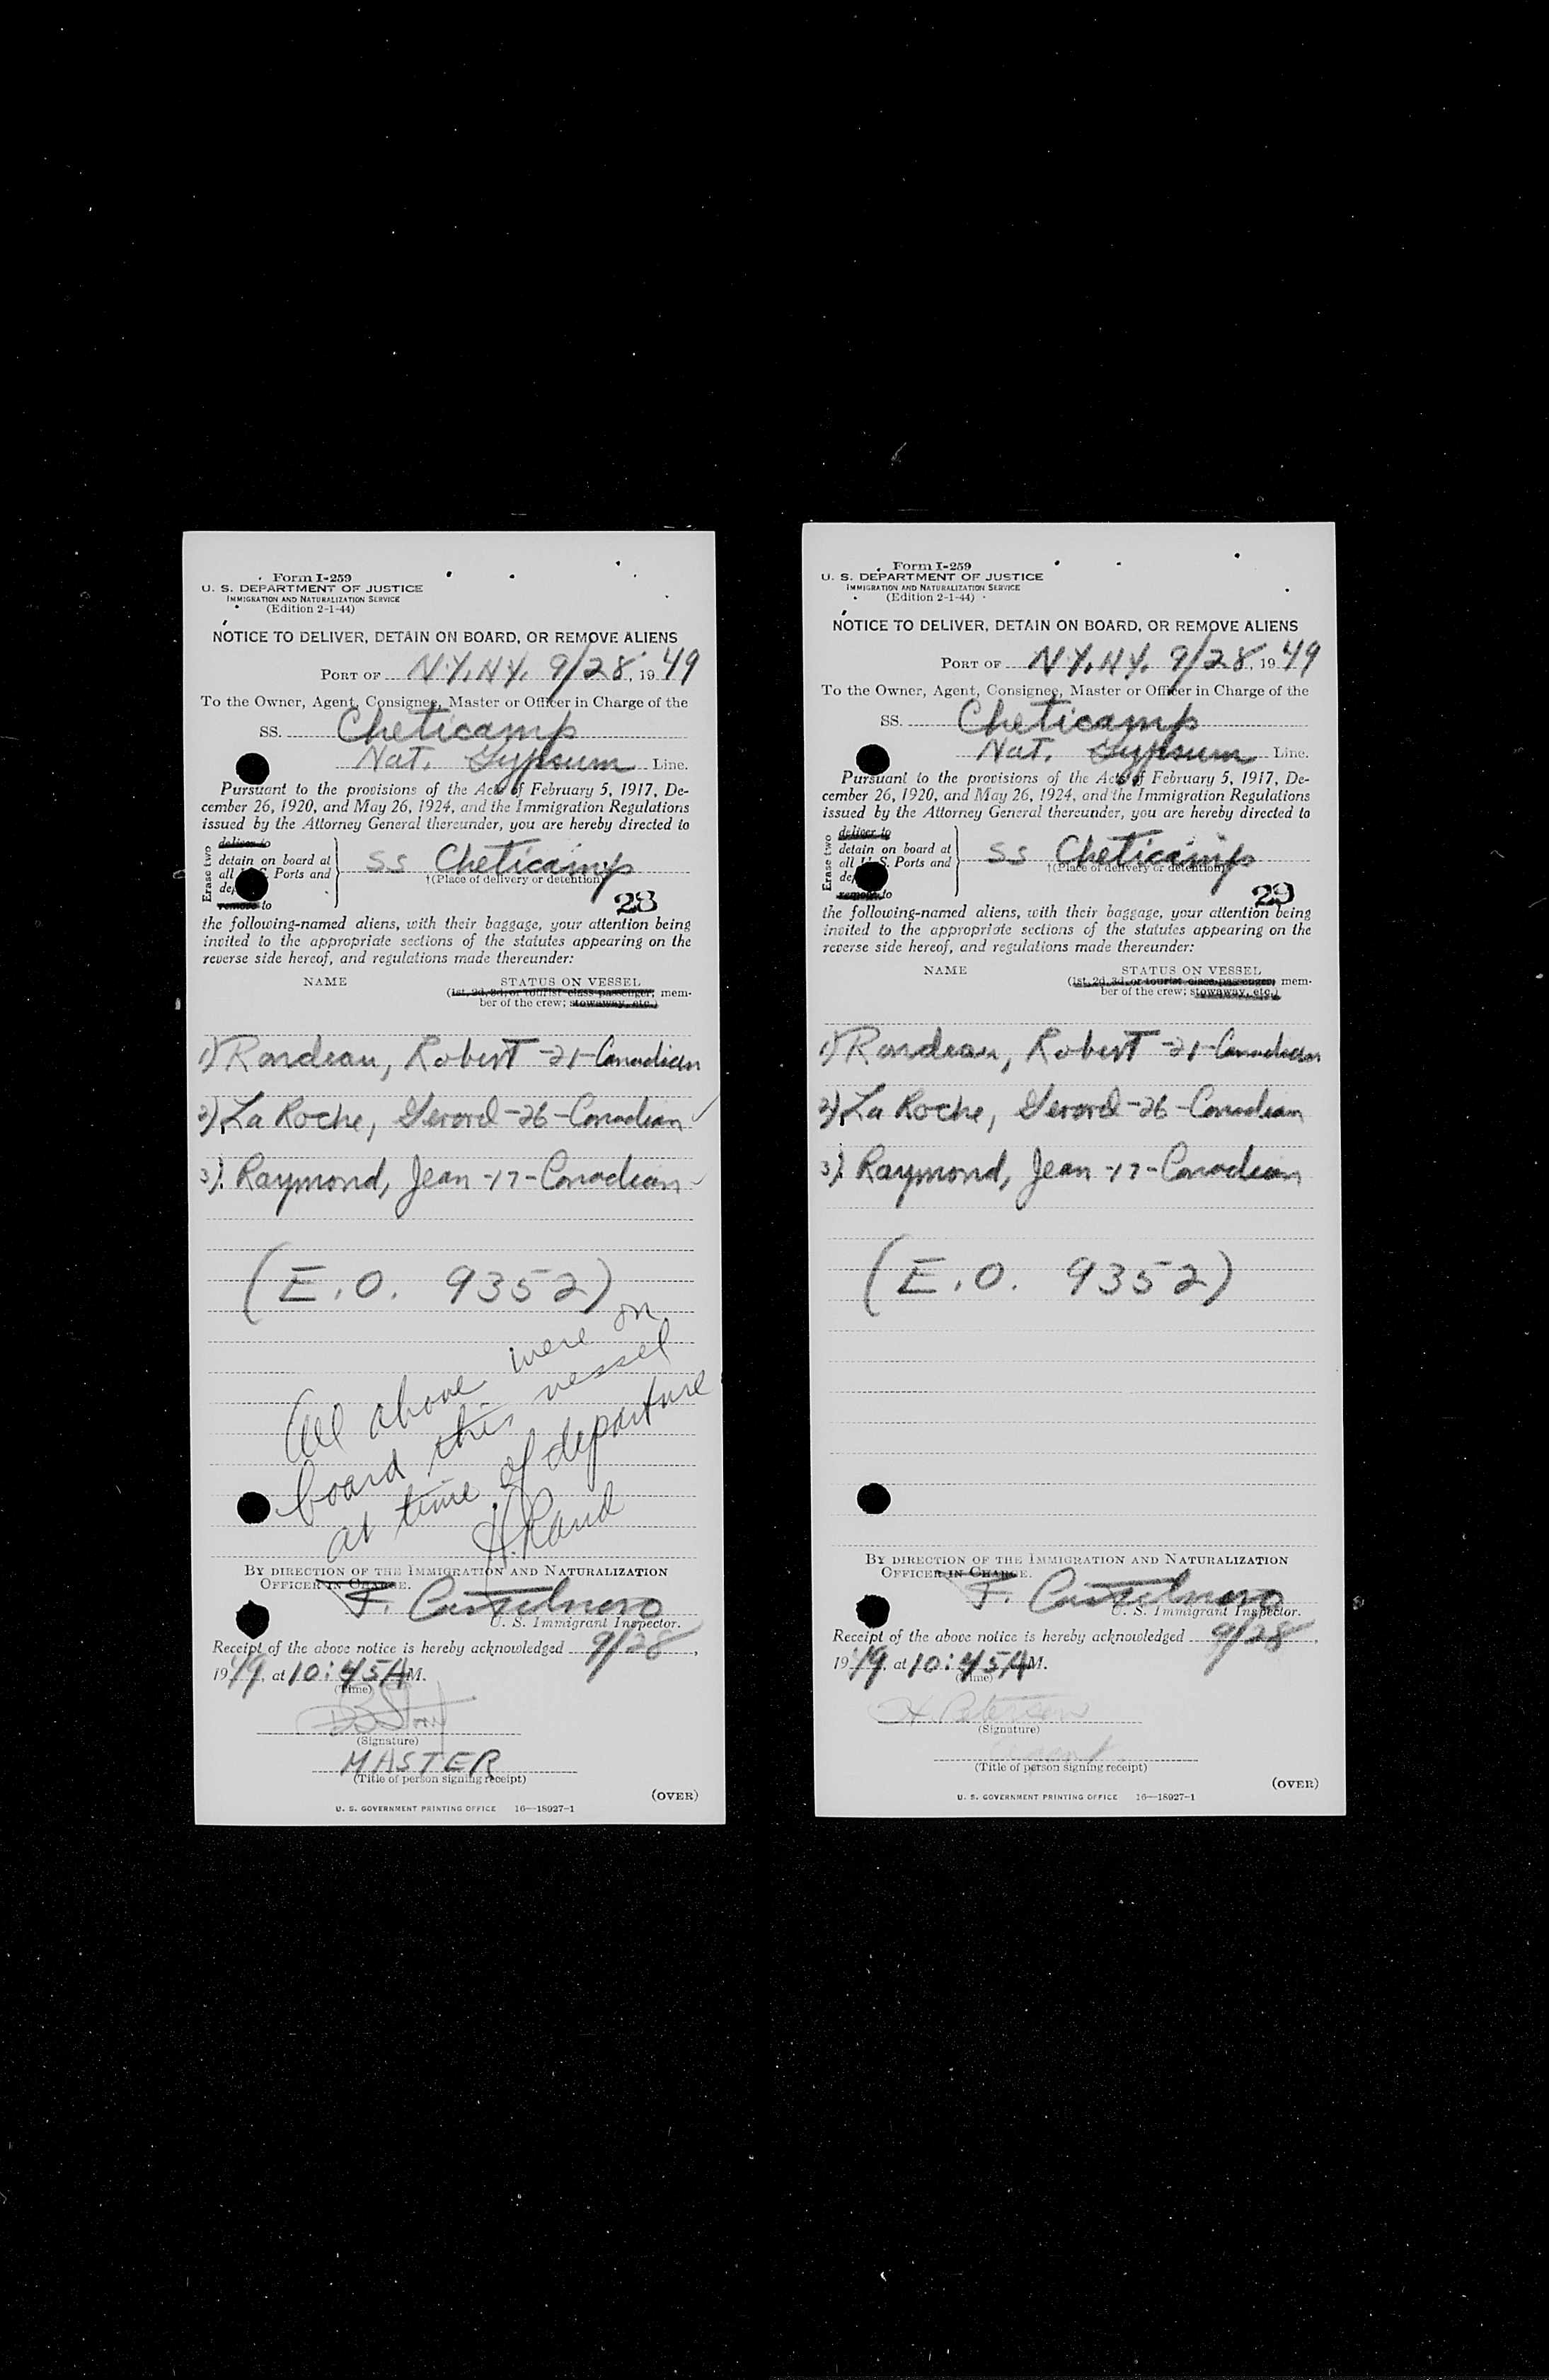 Form I-259
U. S. DEPARTMENT OF JUSTICE
IMMIGRATION AND NATURALIZATION SERVICE
(Edition 2-1-44)
NOTICE TO DELIVER, DETAIN ON BOARD, OR REMOVE ALIENS
PORT OF N.Y., N.Y. 9/28, 1949
To the Owner, Agent, Consignee, Master or Officer in Charge of the
SS. Cheticamp
Nat. Gypsum Line.
Pursuant to the provisions of the Acts of February 5, 1917, De-
cember 26, 1920, and May 26, 1924, and the Immigration Regulations
issued by the Attorney General thereunder, you are hereby directed to
Erase two
deliver to
detain on board at
all U. S. Ports and
remove to
SS Cheticamp
†(Place of delivery or detention)
28
the following-named aliens, with their baggage, your attention being
invited to the appropriate sections of the statutes appearing on the
reverse side hereof, and regulations made thereunder:
NAME STATUS ON VESSEL
(1st, 2d, 3d, or tourist class passenger; mem-
ber of the crew; stowaway, etc.)
1) Rondeau, Robert -21- Canadian
2) La Roche, Gerard -26- Canadian
3) Raymond, Jean -17- Canadian
(E.O. 9352)
All above were on
board this vessel
at time of departure
H. Rand
BY DIRECTION OF THE IMMIGRATION AND NATURALIZATION
OFFICER IN CHARGE.
F.
U. S. Immigrant Inspector.
Receipt of the above notice is hereby acknowledged 9/28,
1949, at 10:45 A M.
(Time)
(Signature)
MASTER
(Title of person signing receipt)
(OVER)
U. S. GOVERNMENT PRINTING OFFICE 16—18927-1
Form I-259
U. S. DEPARTMENT OF JUSTICE
IMMIGRATION AND NATURALIZATION SERVICE
(Edition 2-1-44)
NOTICE TO DELIVER, DETAIN ON BOARD, OR REMOVE ALIENS
PORT OF N.Y., N.Y. 9/28, 1949
To the Owner, Agent, Consignee, Master or Officer in Charge of the
SS. Cheticamp
Nat. Gypsum Line.
Pursuant to the provisions of the Acts of February 5, 1917, De-
cember 26, 1920, and May 26, 1924, and the Immigration Regulations
issued by the Attorney General thereunder, you are hereby directed to
Erase two
deliver to
detain on board at
all U. S. Ports and
remove to
SS Cheticamp
†(Place of delivery or detention)
29
the following-named aliens, with their baggage, your attention being
invited to the appropriate sections of the statutes appearing on the
reverse side hereof, and regulations made thereunder:
NAME STATUS ON VESSEL
(1st, 2d, 3d, or tourist class passenger; mem-
ber of the crew; stowaway, etc.)
1) Rondeau, Robert -21- Canadian
2) La Roche, Gerard -26- Canadian
3) Raymond, Jean -17- Canadian
(E.O. 9352)
BY DIRECTION OF THE IMMIGRATION AND NATURALIZATION
OFFICER IN CHARGE.
F.
U. S. Immigrant Inspector.
Receipt of the above notice is hereby acknowledged 9/28,
1949, at 10:45 A M.
(Time)
H. Petersen
(Signature)
Agent
(Title of person signing receipt)
(OVER)
U. S. GOVERNMENT PRINTING OFFICE 16—18927-1